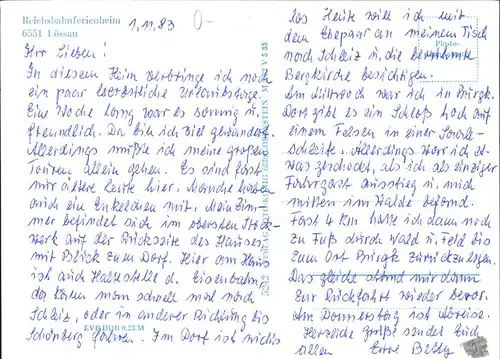 Reichsbahnferienheim
6551 Lössau
1.11.83
0-
Ihr Lieben!
In diesem Heim verbringe ich noch
ein paar herbstliche Urlaubstage.
Eine Woche lang war es sonnig u.
freundlich. Da bin ich viel gewandert.
Allerdings mußte ich meine großen
Touren allein gehen. Es sind fast
nur ältere Leute hier. Manche haben
auch ein Enkelchen mit. Mein Zim-
mer befindet sich im obersten Stock-
werk auf der Rückseite des Hauses
mit Blick zum Dorf. Hier am Haus
ist auch Haltestelle d. Eisenbahn,
da kann man schnell mal nach
Schleiz, oder in anderer Richtung bis
Schönberg fahren. Im Dorf ist nichts
EVP DDR 0,25 M
V 5 33
los. Heute will ich mit
dem Ehepaar an meinem Tisch
nach Schleiz u. die berühmte
Photo-
Bergkirche besichtigen.
Am Mittwoch war ich in Burgk.
Dort gibt es ein Schloß hoch auf
einem Felsen in einer Saale-
schleife. Allerdings war ich et-
was geschockt, als ich als einziger
Fahrgast ausstieg u. mich
mitten im Walde befand.
Fast 4 km hatte ich dann noch
zu Fuß durch Wald u. Feld bis
zum Ort Burgk zurückzulegen.
Das gleiche stand mir dann
zur Rückfahrt wieder bevor.
Am Donnerstag ist Abreise.
Herzliche Grüße sendet Euch
allen Eure Betty